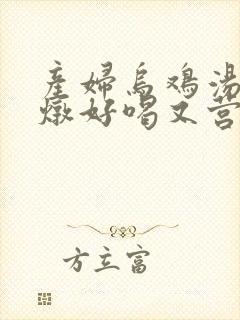 産婦烏鴉湯
燉好喝又营
方立富